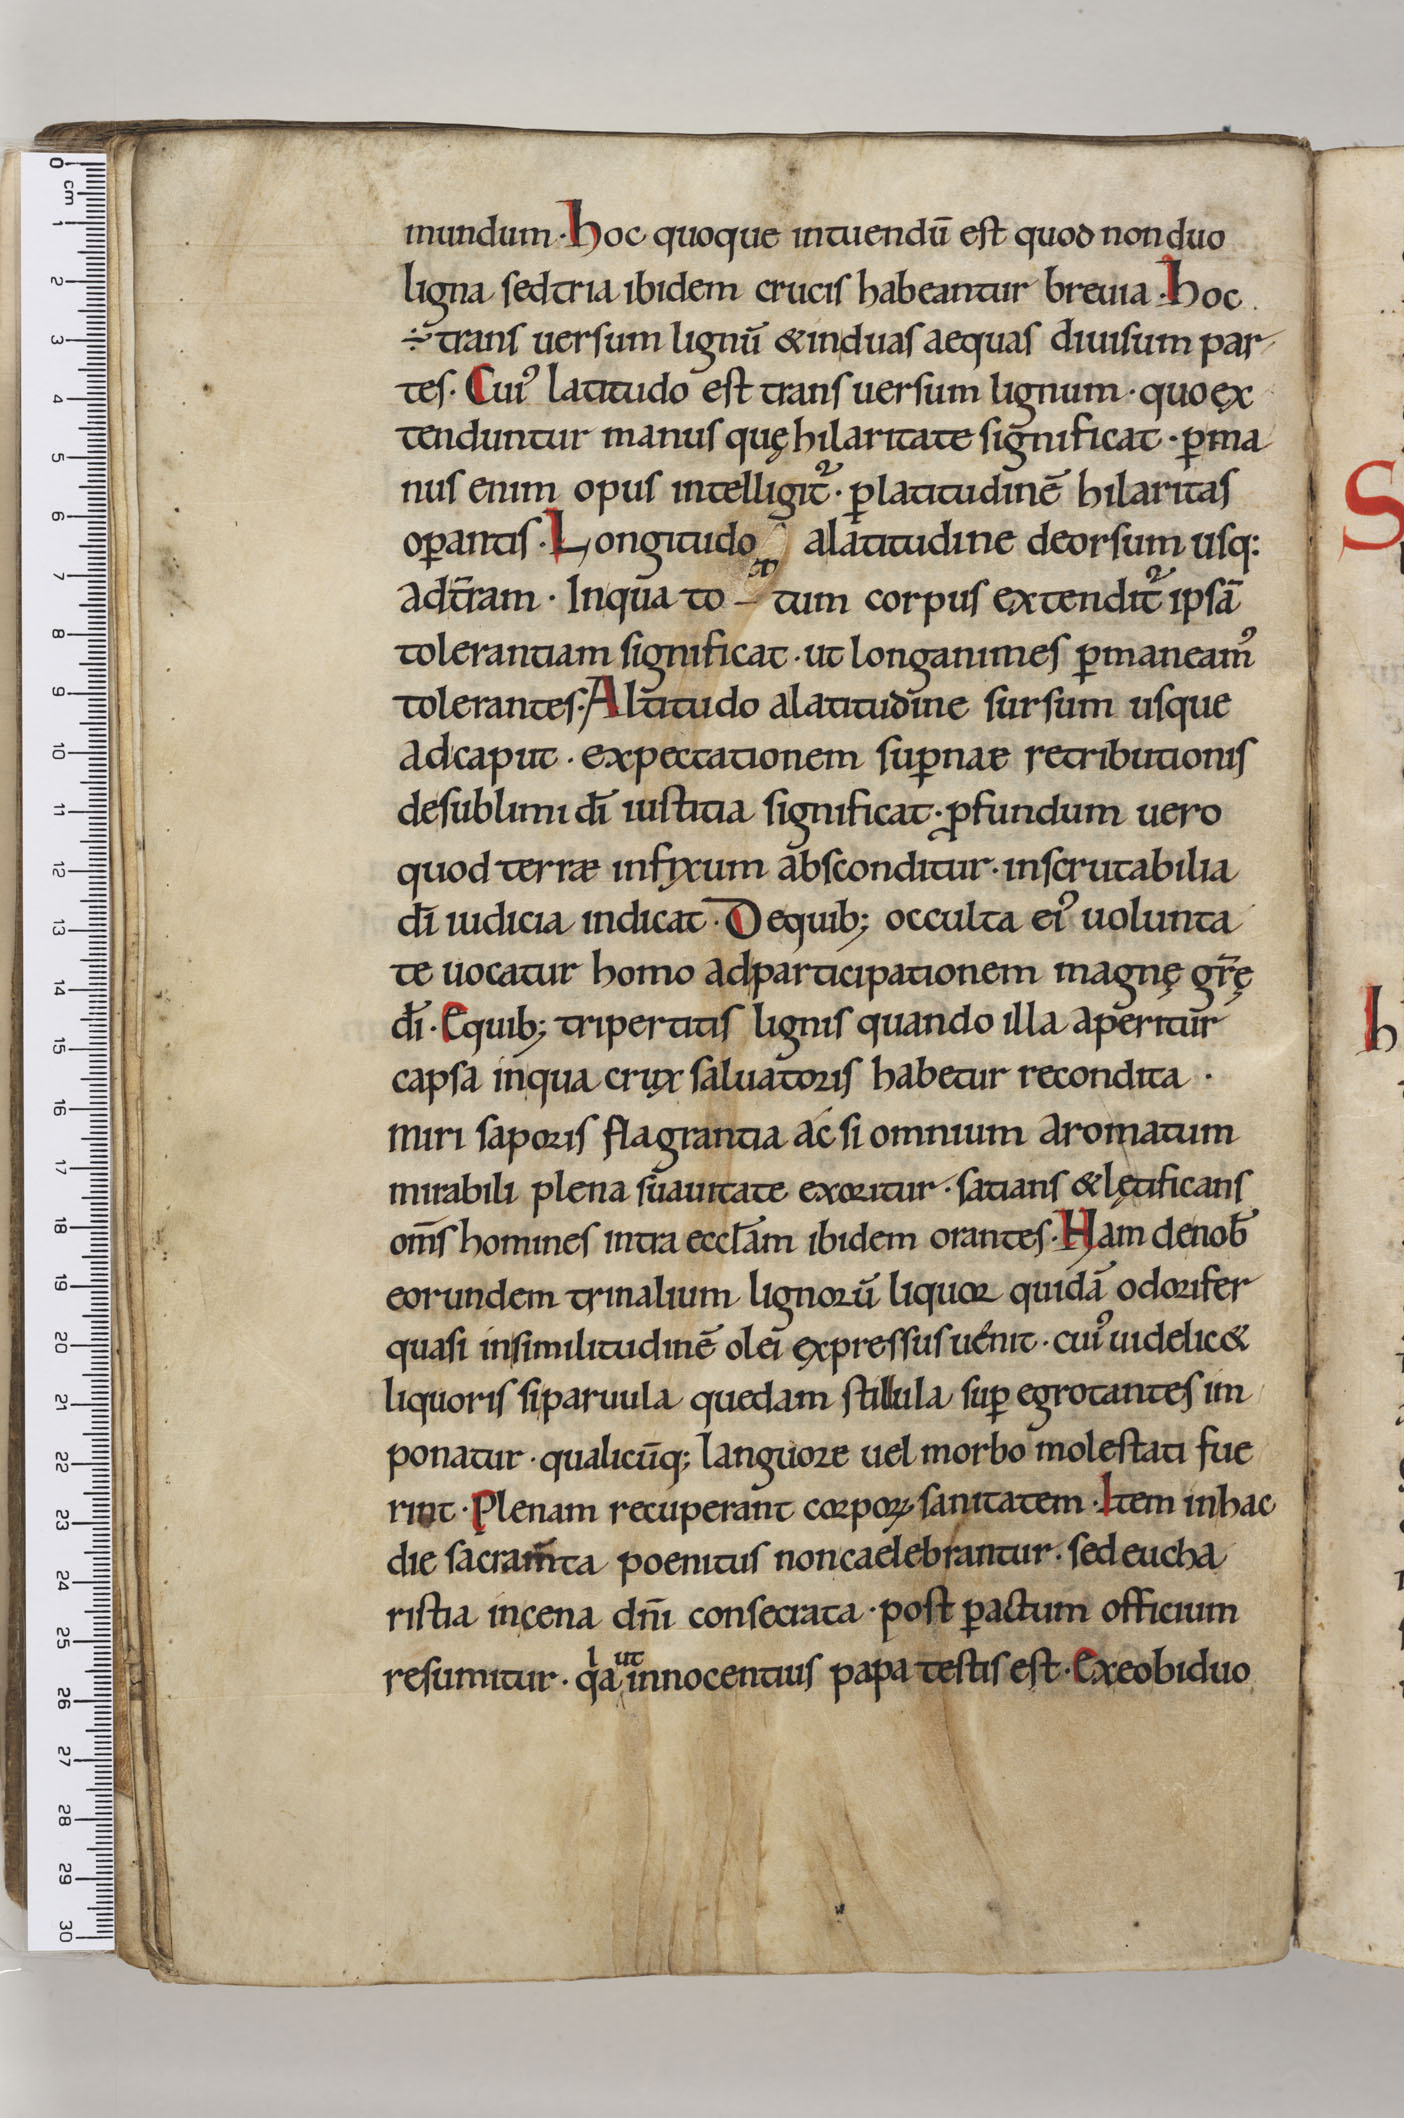 mundum · hoc quoque intuendū est quod non duo
ligna sed tria ibidem crucis habeantur breuia · hoc
÷ trans uersum lignū & in duas aequas diuisum par
tes · Cuiꝰ latitudo est trans uersum lignum · quo ex
tenduntur manus quę hilaritate significat · ꝑ ma
nus enim opus intelligit᷑ · ꝑ latitudinē hilaritas
oꝑantis · Longitudo a latitudine deorsum usq:
ad t̄ram · In qua to – tum corpus extendit᷑ ipsā
tolerantiam significat · ut longanimes ꝑmaneamꝰ
tolerantes · Altitudo a latitudine sursum usque
ad caput · expectationem suꝑnae retributionis
de sublimi dī iustitia significat · ꝓfundum uero
quod terræ infixum absconditur · inscrutabilia
dī iudicia indicat · De quib; occulta eiꝰ uolunta
te uocatur homo ad participationem magnę gr̄ę
dī · E quib; tripertitis lignis quando illa aperitur
capsa in qua crux saluatoris habetur recondita ·
miri saporis flagrantia ac si omnium aromatum
mirabili plena suauitate exoritur · satians & lętificans
om̄s homines intra eccl̄am ibidem orantes · Nam de nob̄
eorundem trinalium lignorū liquor quidā odorifer
quasi in similitudinē olei expressus uenit · cuiꝰ uidelic&
liquoris si paruula quedam stillula suꝑ egrotantes im
ponatur · qualicūq; languore uel morbo molestati fue
rint · Plenam recuperant corporꝝ sanitatem · Item in hac
die sacram̄ta poenitus non caelebrantur · sed eucha
ristia in cena dn̄i consecrata · post ꝑactum officium
resumitur · qͥa ut innocentius papa testis est · Ex eo biduo
S
h